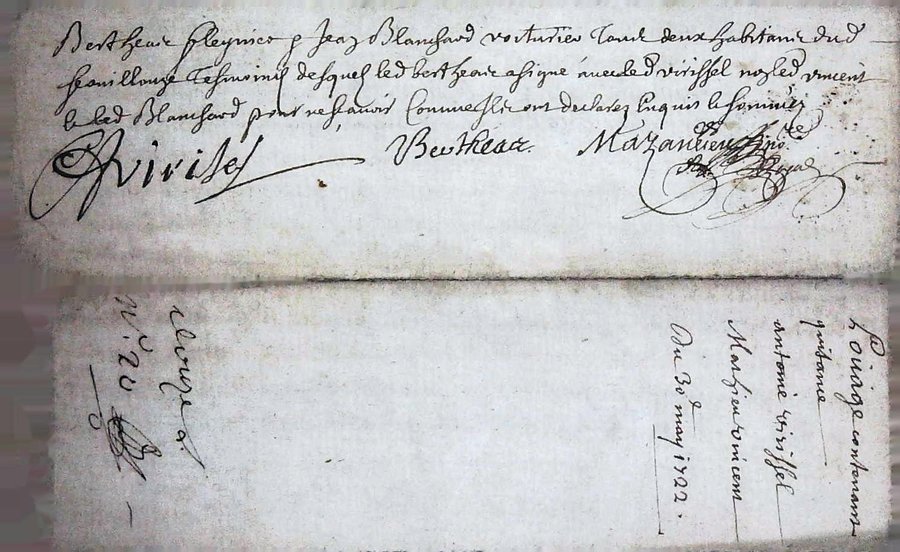 Bertheac & Jean Blanchard voiturier Tous deux habitans dud
feouillouze Tesmoins desquels led bertheac a signé avec led virissel non led vincent
le led Blanchard pour ne sçavoir Comme ils ont declarez Enquis & sommez
Virisel Bertheac Mazancieu
Louiage contenant
quitance
antoine virissel
Mathieu vincent
Du 30 may 1722.
N°. 20